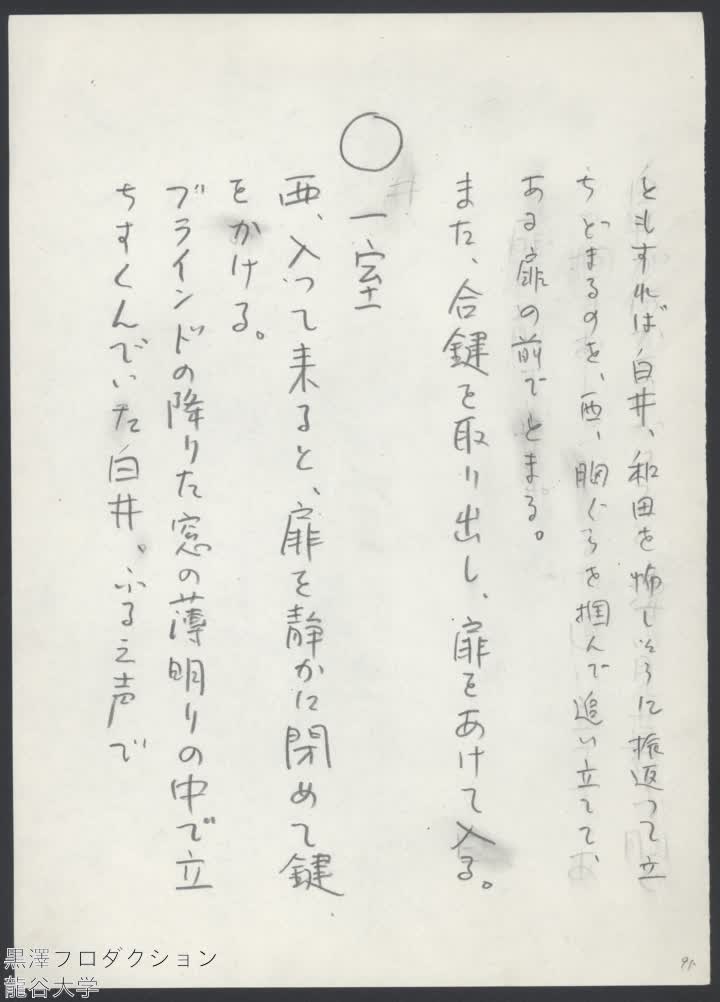 ともすれば白井、和田を怖しそうに振返って立
ちどまるのを、西、胸ぐらを掴んで追い立てて、
ある扉の前でとまる。
また、合鍵を取り出し、扉をあけて入る。
#
○
一室
西、入って来ると、扉を静かに閉めて鍵
をかける。
ブラインドの降りた窓の薄明りの中で立
ちすくんでいた白井。ふるえ声で
91
黒澤フロダクション
龍谷大学